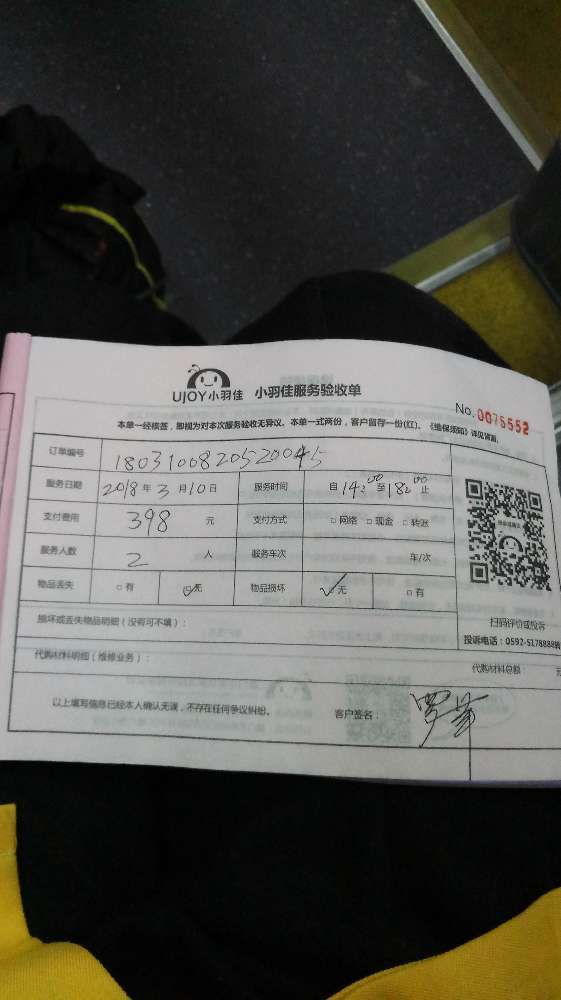 UJOY小羽佳 小羽佳服务验收单
No. 0076552
本单一经核签，即视为对本次服务验收无异议。本单一式两份，客户留存一份(红)。《维保须知》详见背面。
订单编号 1803100820520045
服务日期 2018年3月10日 服务时间 自14:00至18:00止
支付费用 398 元 支付方式 □网络 □现金 □转账
服务人数 2 人 服务车次 车/次
物品丢失 □有 ☑无 物品损坏 ☑无 □有
扫码评价或投诉
投诉电话：0592-5178888转
损坏或丢失物品明细（没有可不填）：
代购材料明细（维修业务）： 代购材料总额： 元
以上填写信息已经本人确认无误，不存在任何争议纠纷。 客户签名：